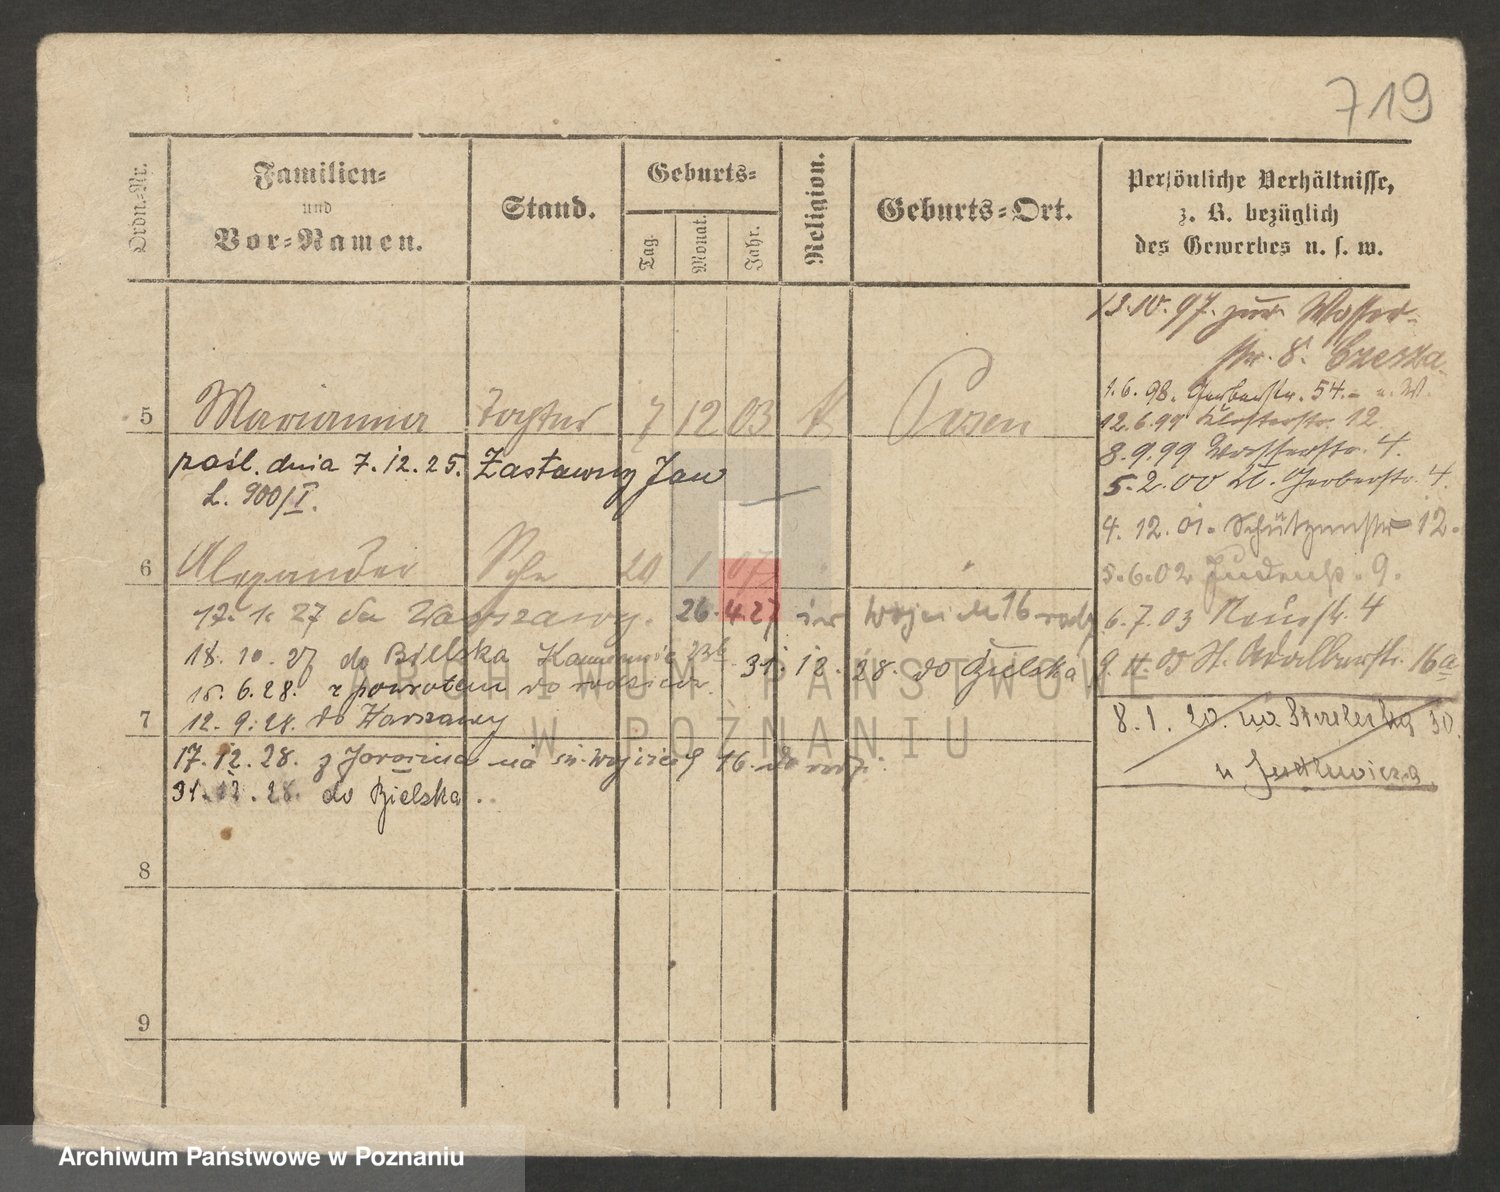 719
Ordn.-Nr.
Familien-
und
Vor-Namen.
Stand.
Geburts-
Tag.
Monat.
Jahr.
Religion.
Geburts-Ort.
Persönliche Verhältnisse,
z. B. bezüglich
des Gewerbes u. s. w.
13.10.97. zur Wasser-
str. 8.
1.6.98. Gerberstr. 54.
5 Marianna Tochter 7 12 03 K Posen
12.6.99 Klosterstr. 12.
8.9.99 Wasserstr. 4.
pośl. dnia 7.12.25. Zastawny Jan
5.2.00 Kl. Gerberstr. 4.
L. 900/I.
4. 12. 01. Schützenstr 12.
6 Alexander Sohn 20 1 07
5.6.02 Judenstr. 9.
17. 1. 27 do Warszawy. 26. 4. 27 św Wojciech 16
6.7.03 Neuestr. 4
18. 10. 27 do Bielska 31. 12. 28. do Bielska
9. 11. 05 St. Adalbertstr. 16a
15. 6. 28. z powrotem do
7 12. 9. 28. do Warszawy
8. 1. 20. na Strzelecką 30.
17. 12. 28. z Jarocina na św. Wojciech 16. do
u
31. 12. 28. do Bielska.
8
9
ARCHIWUM PAŃSTWOWE
W POZNANIU
Archiwum Państwowe w Poznaniu